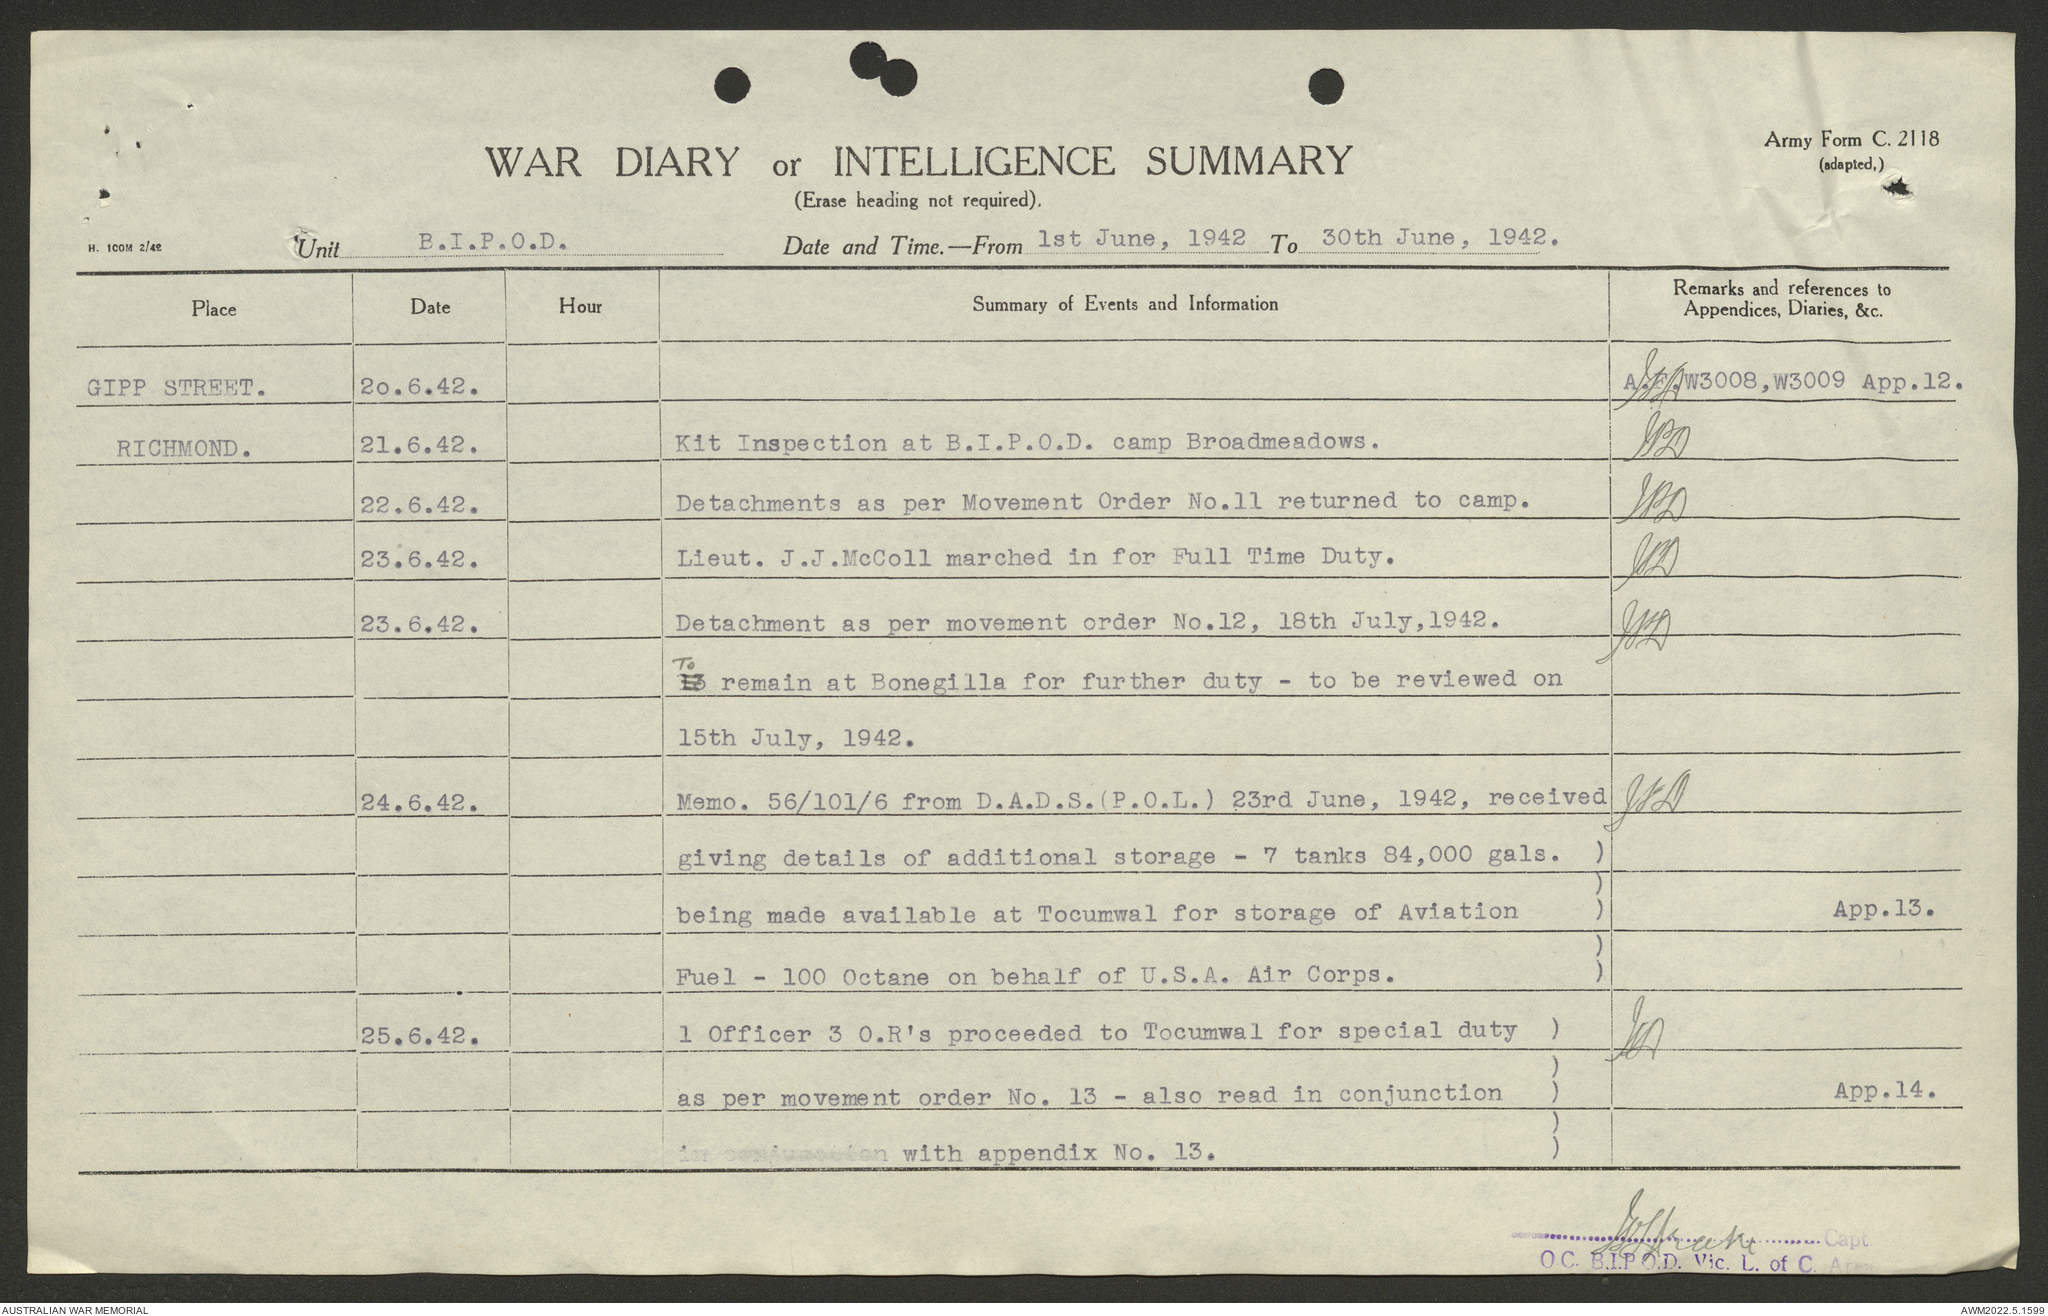 Army Form C. 2118
(adapted,)
WAR DIARY or INTELLIGENCE SUMMARY
(Erase heading not required).
H. 100M 2/42
Unit B.I.P.O.D. Date and Time.—From 1st June, 1942 To 30th June, 1942.
Place Date Hour Summary of Events and Information Remarks and references to Appendices, Diaries, &c.
GIPP STREET. 20.6.42. A.F.W3008,W3009 App.12.
RICHMOND. 21.6.42. Kit Inspection at B.I.P.O.D. camp Broadmeadows.
22.6.42. Detachments as per Movement Order No.11 returned to camp.
23.6.42. Lieut. J.J.McColl marched in for Full Time Duty.
23.6.42. Detachment as per movement order No.12, 18th July,1942.
To remain at Bonegilla for further duty - to be reviewed on
15th July, 1942.
24.6.42. Memo. 56/101/6 from D.A.D.S.(P.O.L.) 23rd June, 1942, received
giving details of additional storage - 7 tanks 84,000 gals. )
)
being made available at Tocumwal for storage of Aviation ) App.13.
)
Fuel - 100 Octane on behalf of U.S.A. Air Corps. )
25.6.42. 1 Officer 3 O.R's proceeded to Tocumwal for special duty )
)
as per movement order No. 13 - also read in conjunction ) App.14.
)
with appendix No. 13. )
Capt
O.C. B.I.P.O.D. Vic. L. of C. Area
AUSTRALIAN WAR MEMORIAL AWM2022.5.1599